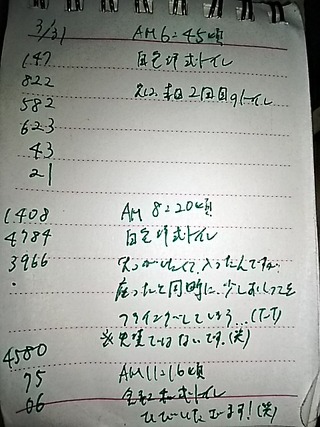 3/31 AM 6:45頃
147 自宅洋式トイレ
822
582 実は、本日2回目のトイレ
623
43
21
1408 AM 8:20頃
4784 自宅洋式トイレ
3966 入ったんですが、
・ 座ったと同時に、少しおしっこを
フライングしてしまう…(T-T)
※失笑ではないです。(笑)
4580
75 AM 11:16頃
06 トイレ
います!(笑)